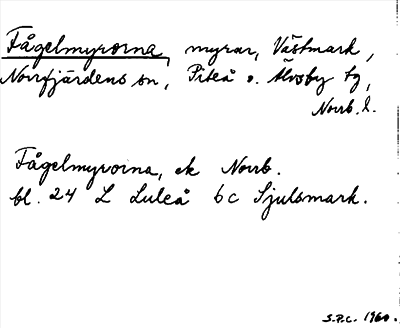 Fågelmyrorna, myrar, Västmark,
Norrfjärdens sn, Piteå o. Älvsby tg,
Norrb. l.
Fågelmyrorna, ek Norrb.
bl. 24 L Luleå 6c Sjulsmark.
S.P.C. 1960.